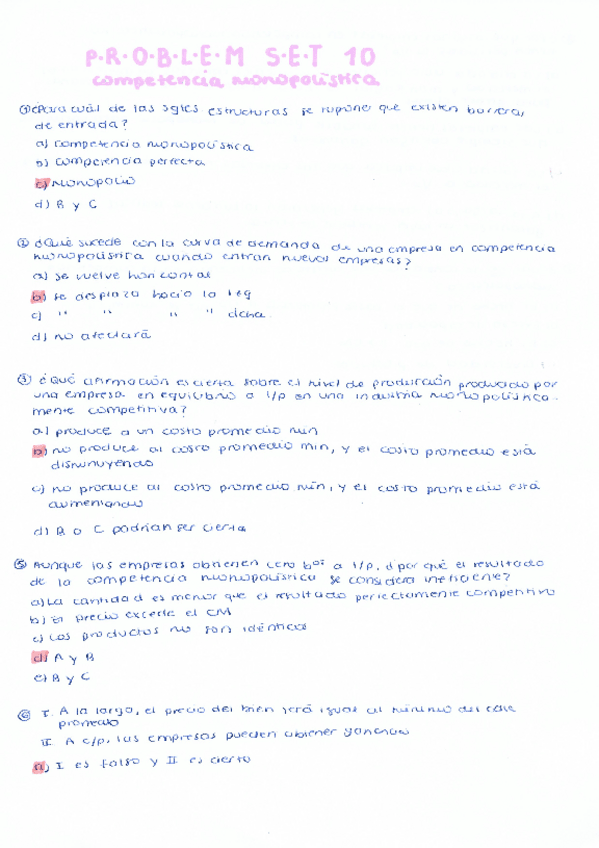 P·R·O·B·L·E·M S·E·T 10
competencia monopolística
① ¿Para cuál de las sgtes estructuras se supone que existen barreras
de entrada?
a) competencia monopolística
b) competencia perfecta
c) Monopolio
d) B y C
② ¿Qué sucede con la curva de demanda de una empresa en competencia
monopolística cuando entran nuevas empresas?
a) se vuelve horizontal
b) se desplaza hacia la izq
c) " " " " dcha
d) no afectará
③ ¿Qué afirmación es cierta sobre el nivel de producción producido por
una empresa en equilibrio a l/p en una industria monopolística-
mente competitiva?
a) produce a un costo promedio min
b) no produce al costo promedio min, y el costo promedio está
disminuyendo
c) no produce al costo promedio min, y el costo promedio está
aumentando
d) B o C podrían ser cierta
⑤ Aunque las empresas obtienen cero bos a l/p, ¿por qué el resultado
de la competencia monopolística se considera ineficiente?
a) La cantidad es menor que el resultado perfectamente competitivo
b) El precio excede el CM
c) Los productos no son idénticos
d) A y B
e) B y C
⑥ I. A la largo, el precio del bien será igual al mínimo del coste
promedio
II. A c/p, las empresas pueden obtener ganancia
a) I es falso y II es cierto